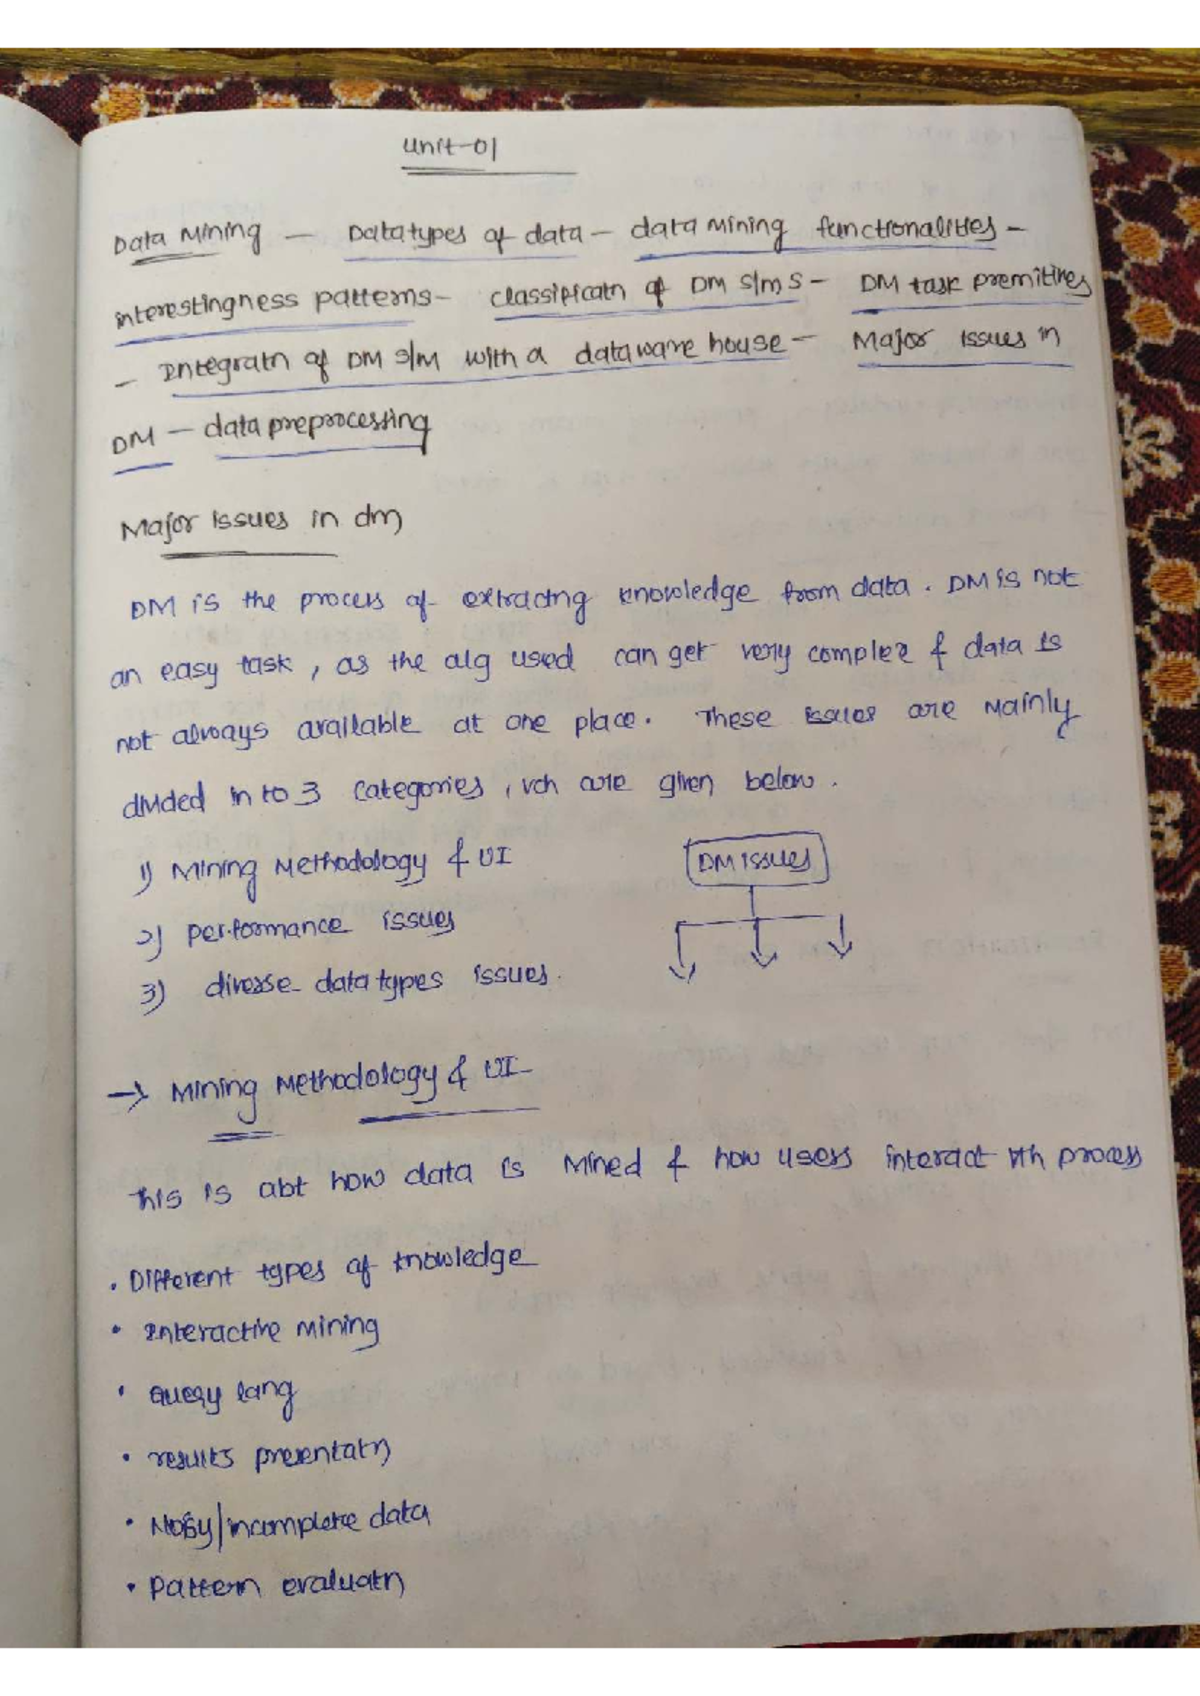 Unit-01
Data Mining — Datatypes of data — data Mining functionalities -
interestingness patterns - classificatn of DM s/m s - DM task premitives
- Integratn of DM s/m with a dataware house - Major issues in
DM — data preprocessing
Major issues in dm
DM is the process of extracting knowledge from data. DM is not
an easy task, as the alg used can get very complex & data is
not always available at one place. These issues are Mainly
divided in to 3 categories, wch are given below.
1) Mining Methodology & UI
2) performance issues
3) diverse data types issues.
DM issues
→ Mining Methodology & UI
This is abt how data is Mined & how users interact wth process
• Different types of knowledge
• Interactive mining
• Query lang
• results presentatn
• Noisy/incomplete data
• Pattern evaluatn